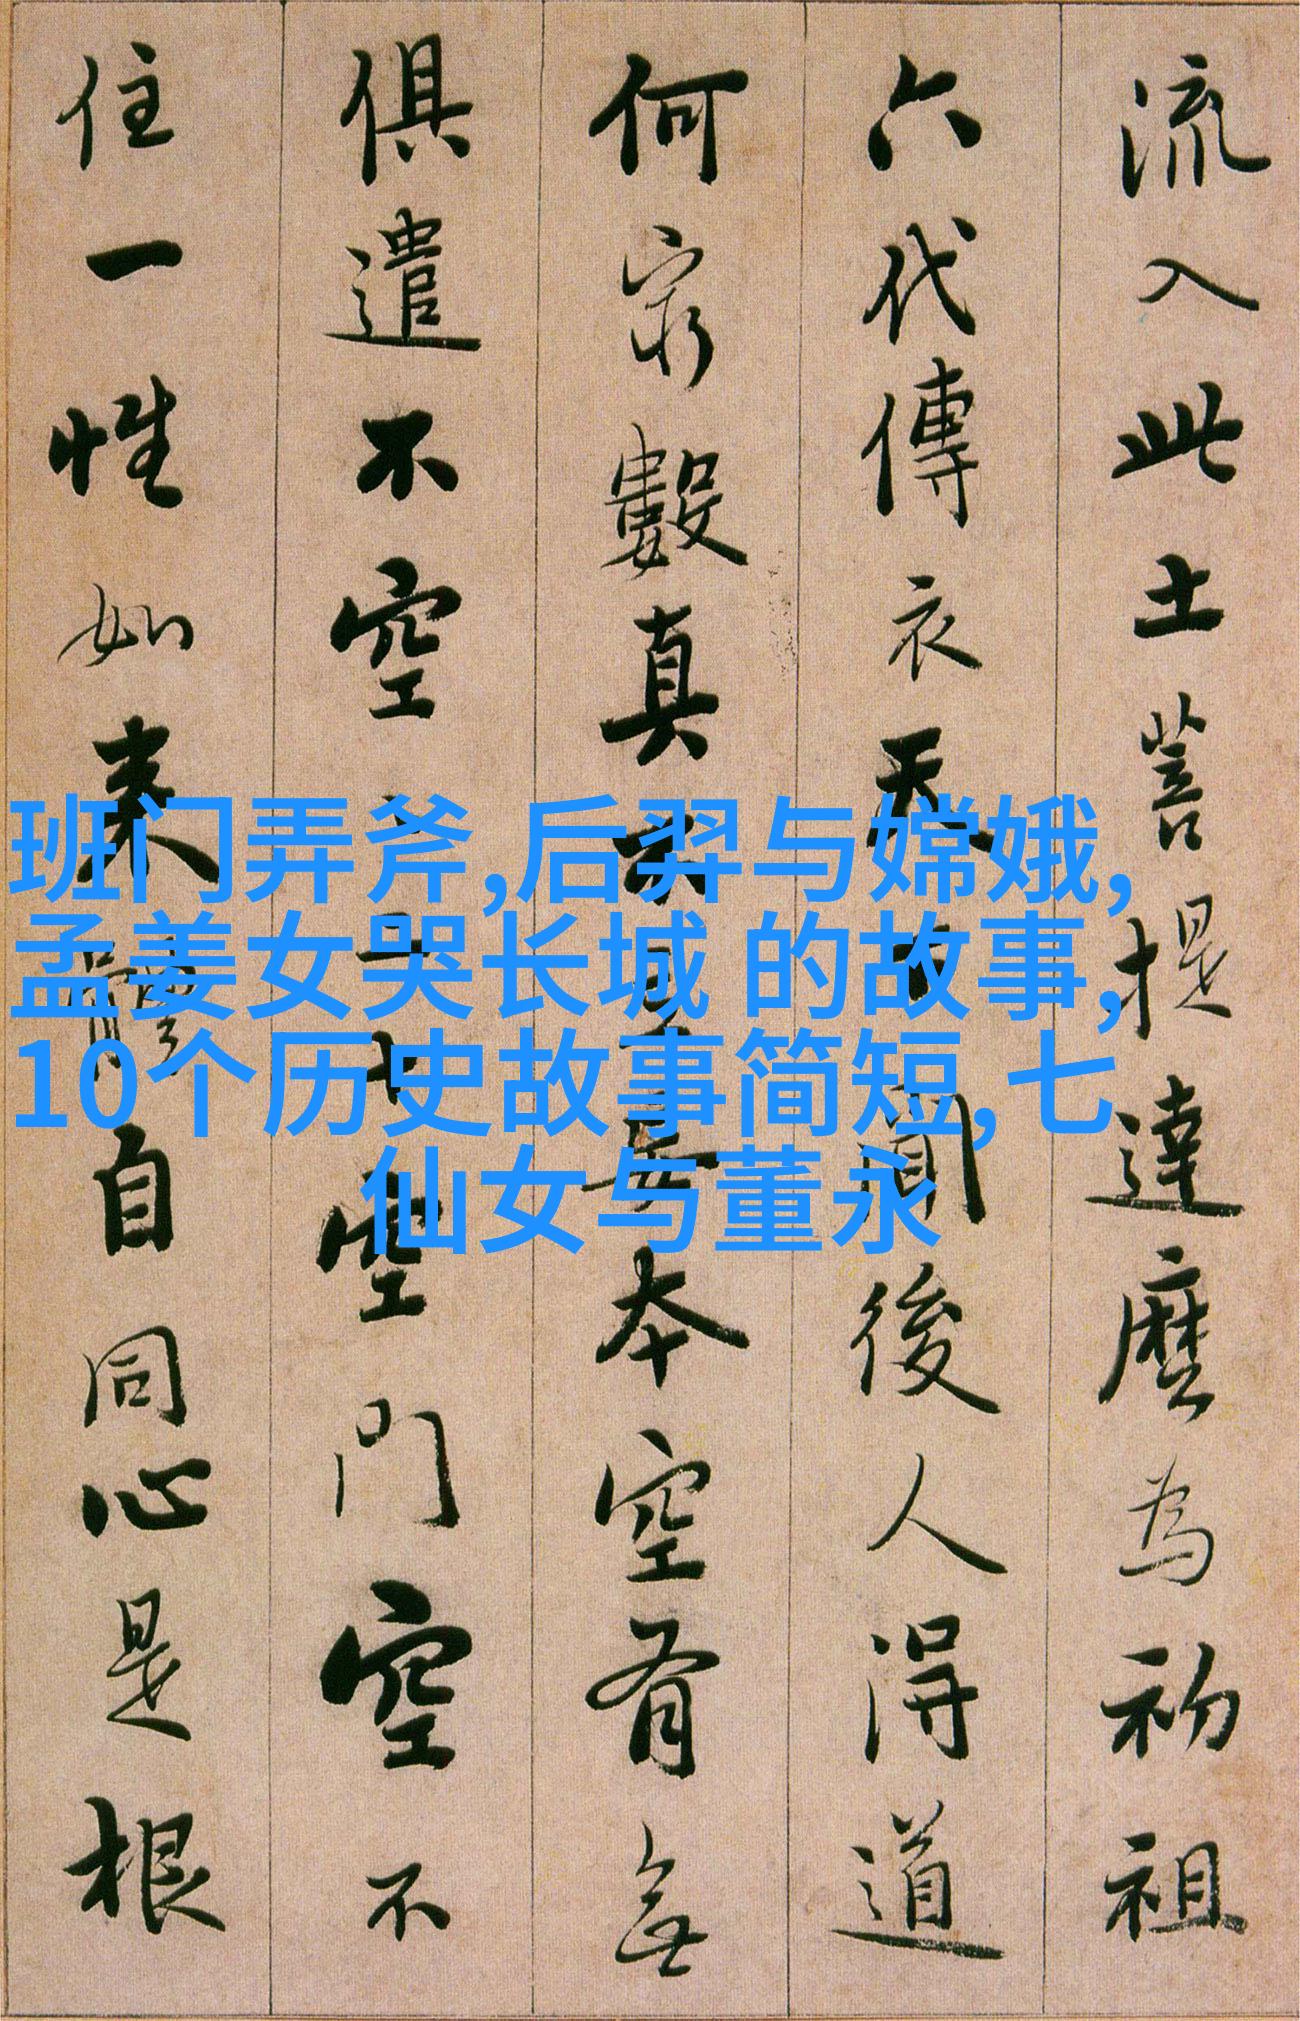 流入此土菩提達麼為初祖
六代傳衣天下聞後人得道
何窮數真不妄本空有無
俱遣不空二十空門空不
住一性如來體自同心是根
班门弄斧,后羿与嫦娥,
孟姜女哭长城 的故事,
10个历史故事简短, 七
仙女与董永